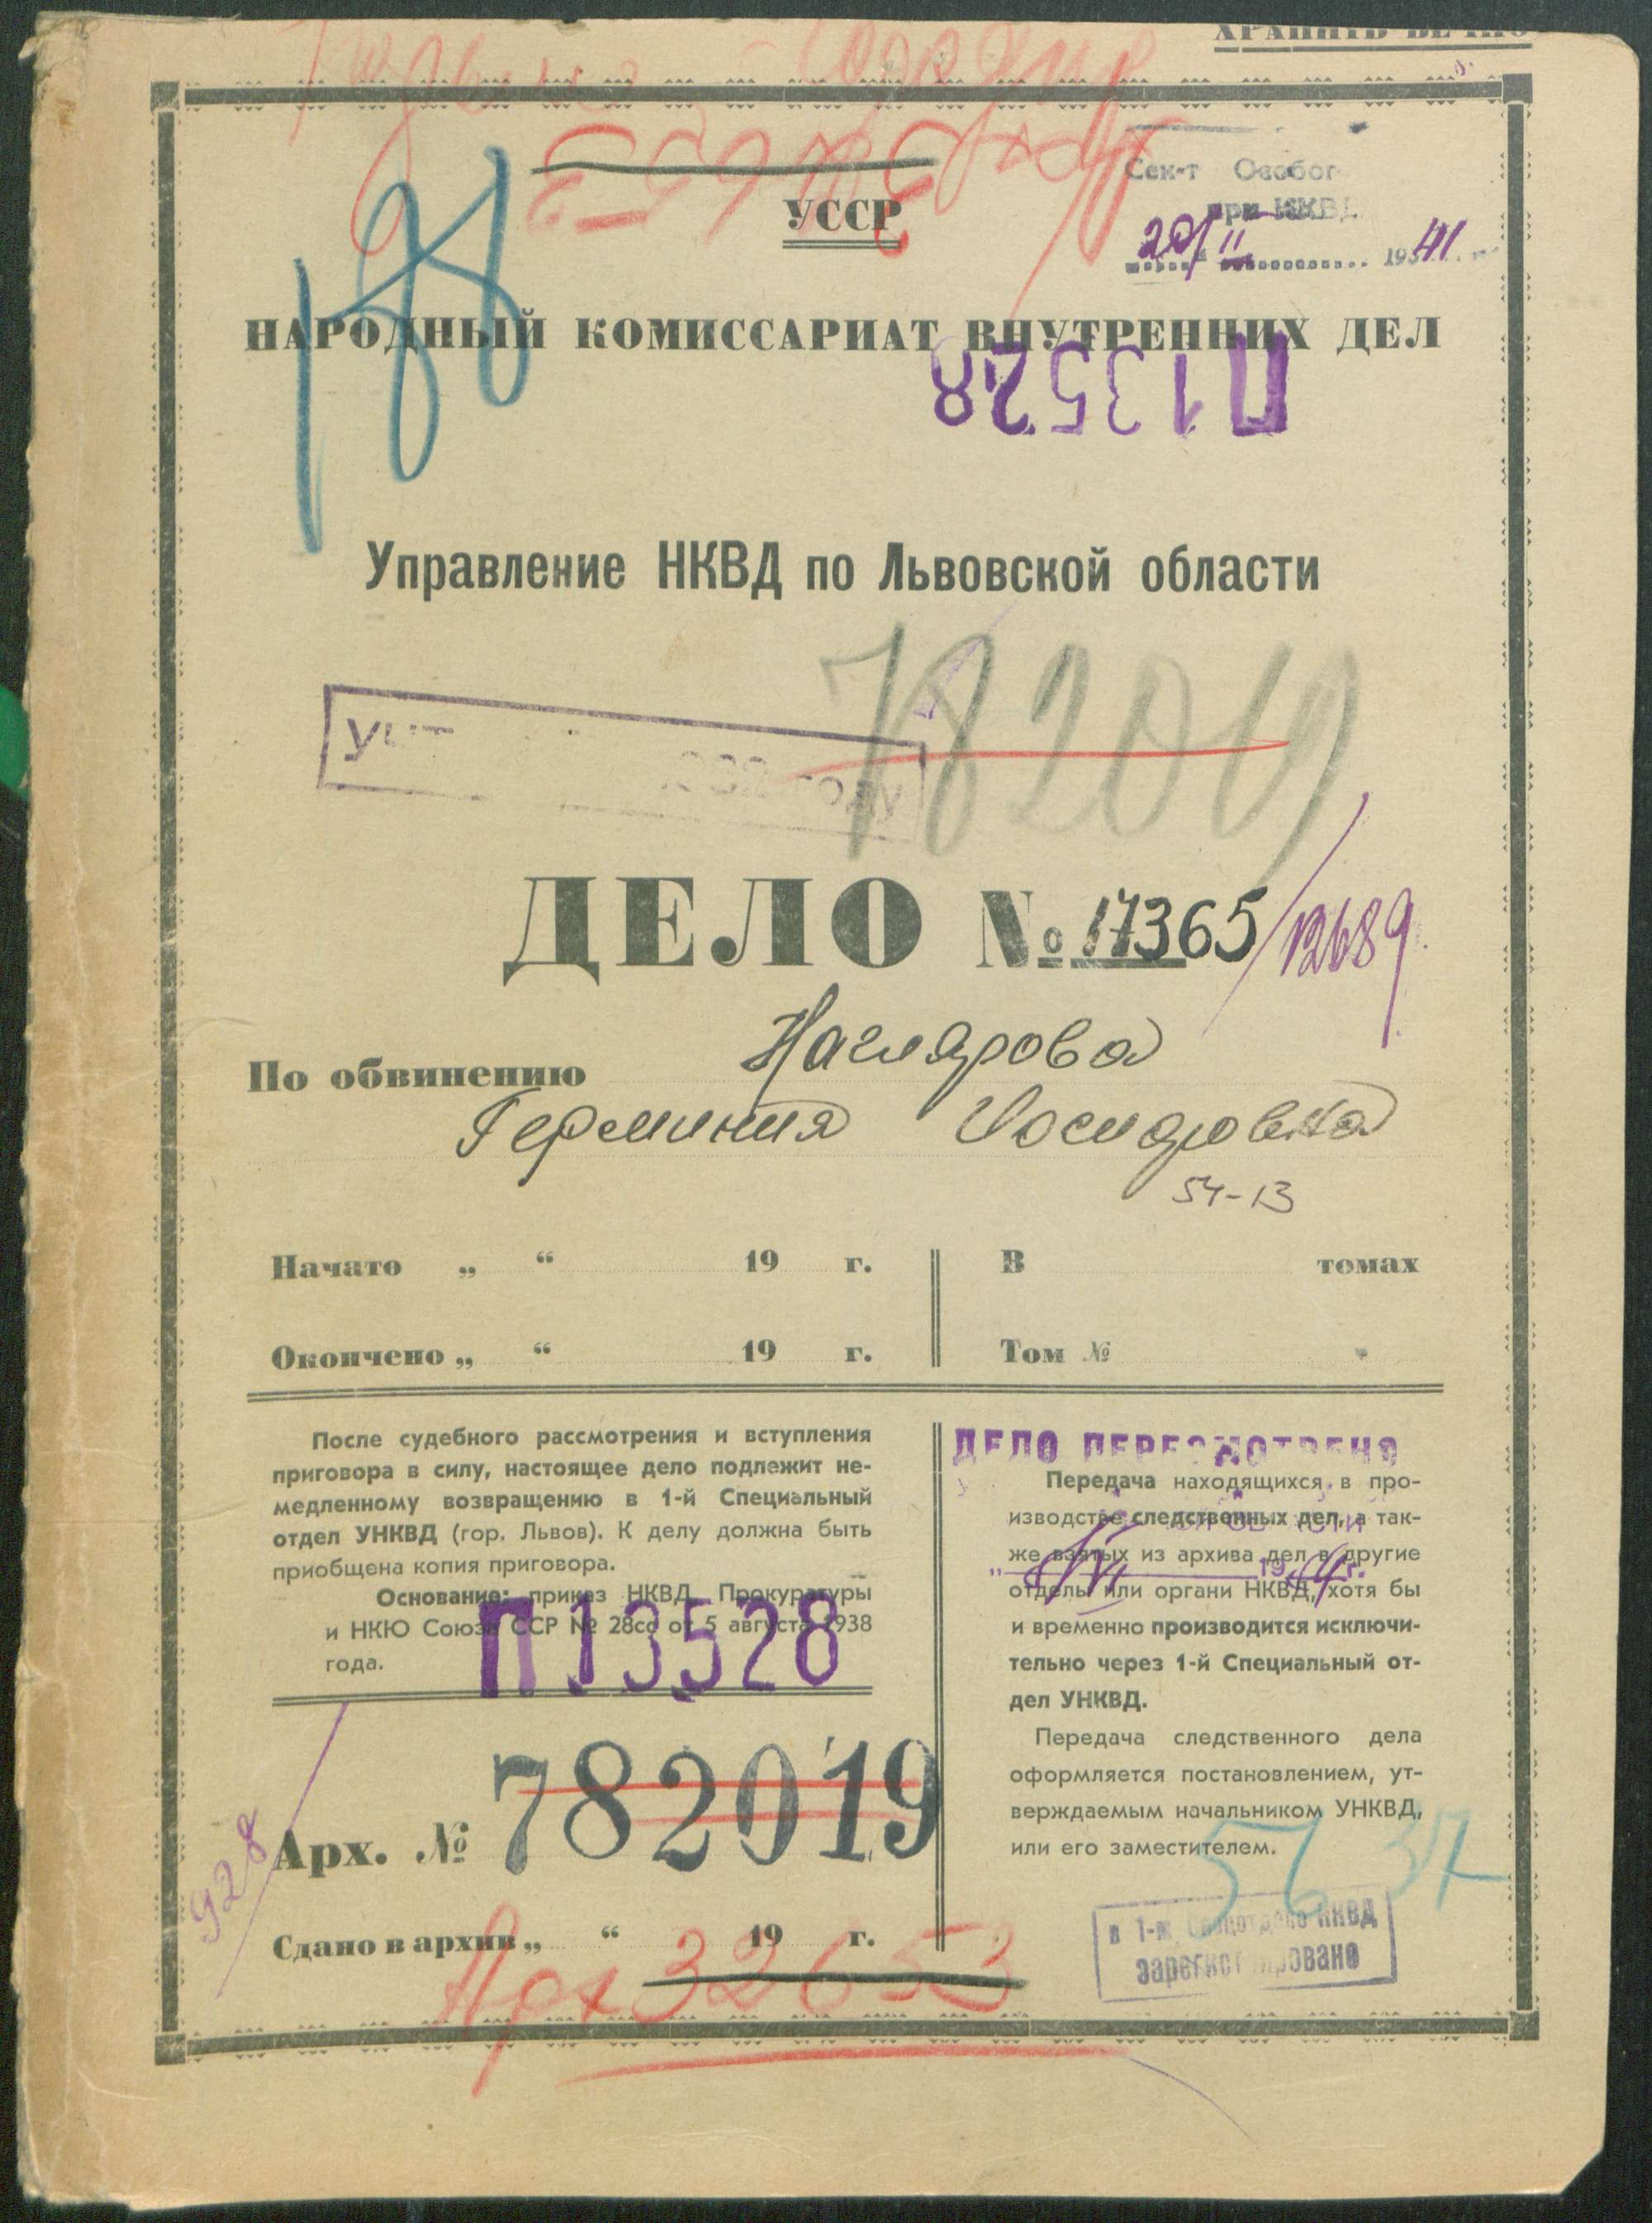 ХРАНИТЬ ВЕЧНО
УССР
Сек-т Особог
при НКВД
20/II 1941
НАРОДНЫЙ КОМИССАРИАТ ВНУТРЕННИХ ДЕЛ
П13528
Управление НКВД по Львовской области
году
782019
ДЕЛО № 17365/12689
По обвинению Наглярова
Герминия Иосифовна
54-13
Начато „ “ 19 г.
В томах
Окончено „ “ 19 г.
Том №
После судебного рассмотрения и вступления
приговора в силу, настоящее дело подлежит не-
медленному возвращению в 1-й Специальный
отдел УНКВД (гор. Львов). К делу должна быть
приобщена копия приговора.
Основание: приказ НКВД, Прокуратуры
и НКЮ Союза ССР № 28сс от 5 августа 1938
года.
П13528
Арх. № 782019
928
Сдано в архив „ “ 19 г.
Арх 32653
ДЕЛО ПЕРЕСМОТРЕНО
Передача находящихся в про-
изводстве следственных дел, а так-
же взятых из архива дел в другие
отделы или органи НКВД, хотя бы
и временно производится исключи-
тельно через 1-й Специальный от-
дел УНКВД.
Передача следственного дела
оформляется постановлением, ут-
верждаемым начальником УНКВД,
или его заместителем.
56 37
в 1-м Спецотделе НКВД
зарегистрировано